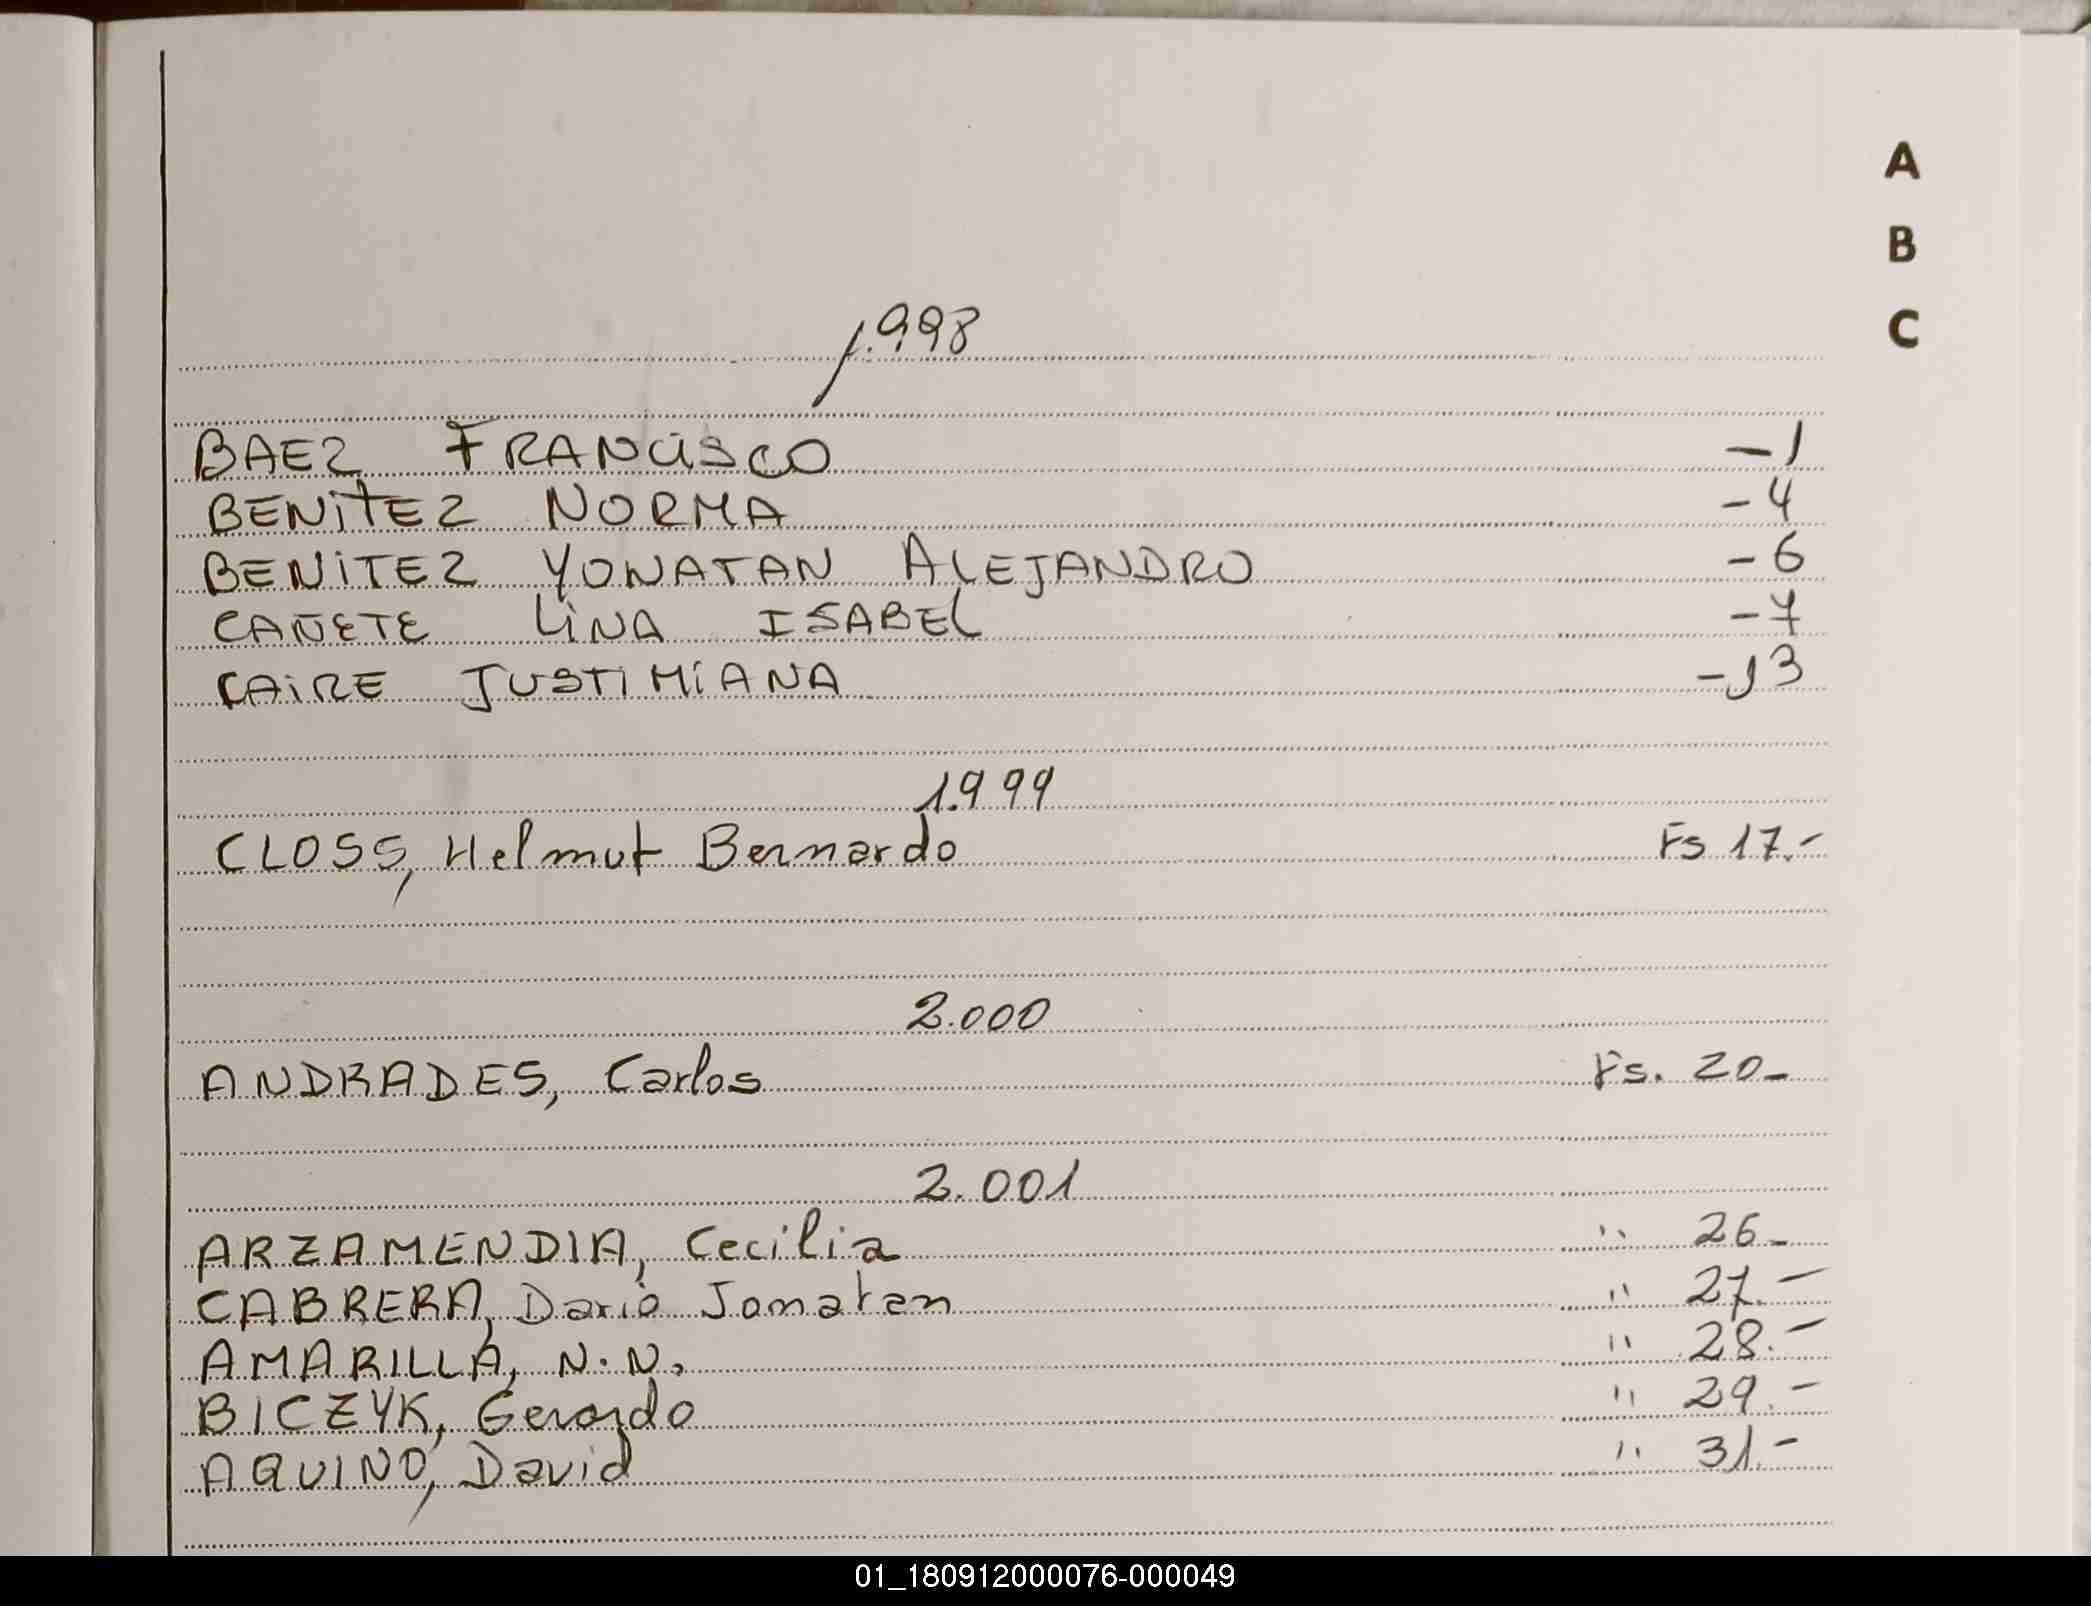 A
B
C
1.998
BAEZ FRANCISCO -1
BENITEZ NORMA -4
BENITEZ YONATAN ALEJANDRO -6
CAÑETE LINA ISABEL -7
CAIRE JUSTIMIANA -13
1.999
CLOSS, Helmut Bernardo Fs 17.-
2.000
ANDRADES, Carlos Fs. 20-
2.001
ARZAMENDIA, Cecilia " 26-
CABRERA, Dario Jonatan " 27.-
AMARILLA, N.N. " 28.-
BICZYK, Gerardo " 29.-
AQUINO, David " 31.-
01_180912000076-000049